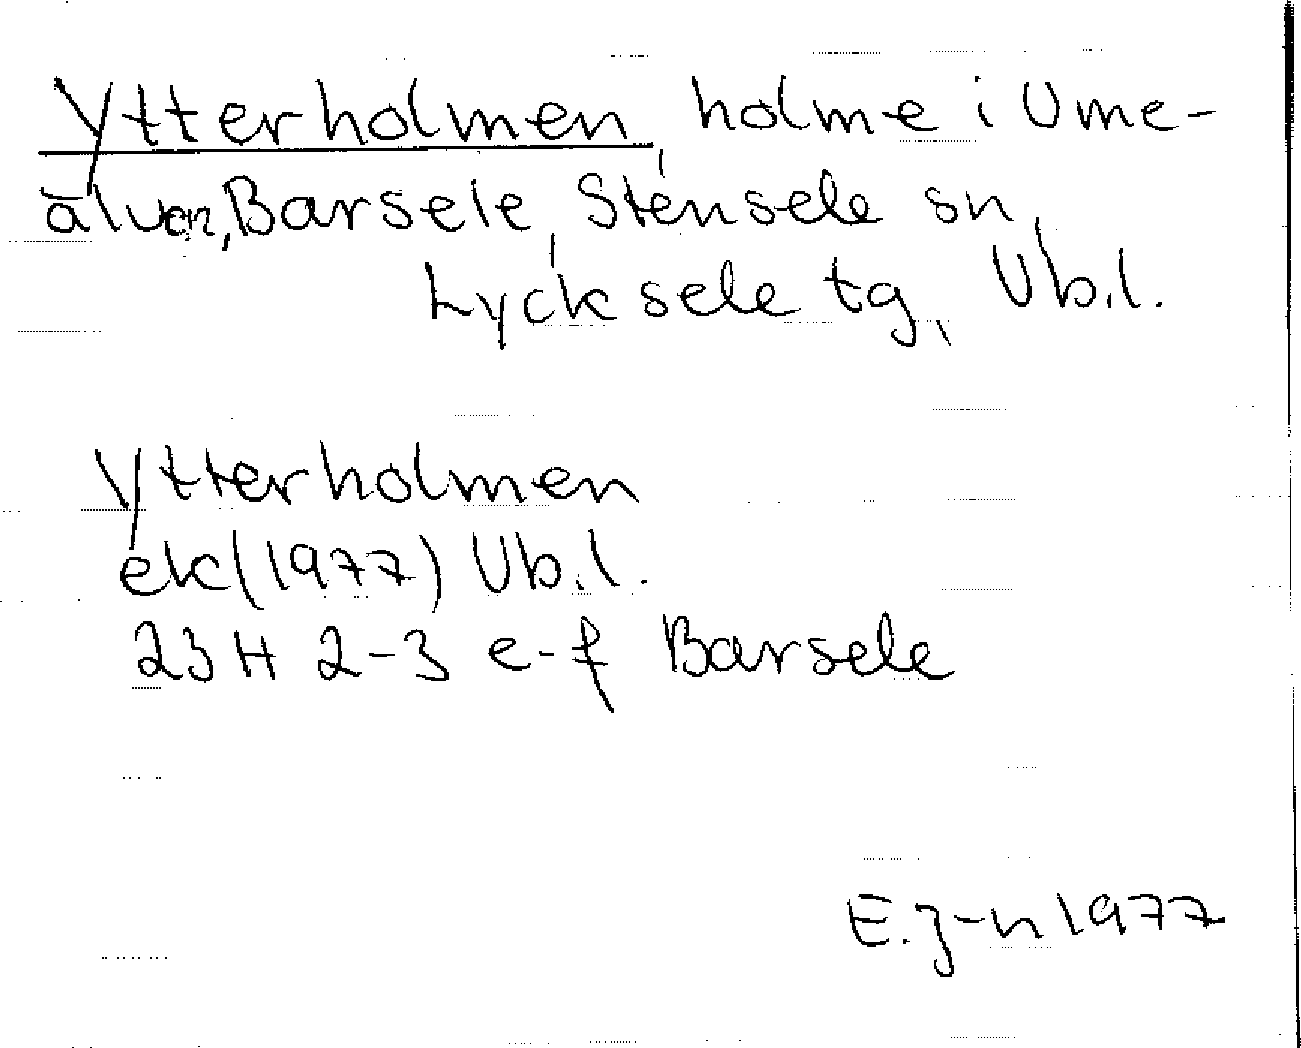 Ytterholmen, holme i Ume-
älven, Barsele, Stensele sn,
Lycksele tg, Vb.l.
Ytterholmen
ek (1977) Vb.l.
23 H 2-3 e-f Barsele
E.J-n 1977